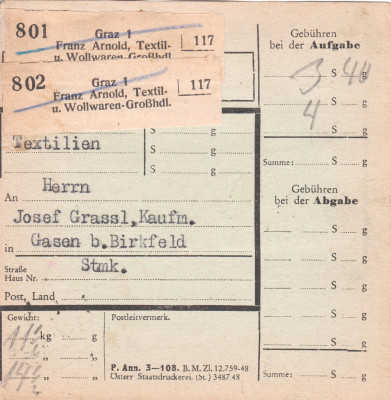 801
Graz 1
Franz Arnold, Textil-
u. Wollwaren-Großhdl.
117
802
Graz 1
Franz Arnold, Textil-
u. Wollwaren-Großhdl.
117
S g
Textilien S g
S g
Herrn
An
Josef Grassl,Kaufm.
in Gasen b.Birkfeld
Stmk.
Straße
Haus Nr.
Post, Land
Gewicht:
kg g
„ „
„ „
Postleitvermerk.
P. Ann. 3—108. B. M. Zl. 12.759-48
Österr Staatsdruckerei. (St.) 3487 48
Gebühren
bei der Aufgabe
3 S 40 g
4 S g
S g
Summe: S g
Gebühren
bei der Abgabe
S g
S g
S g
S g
S g
Summe: S g